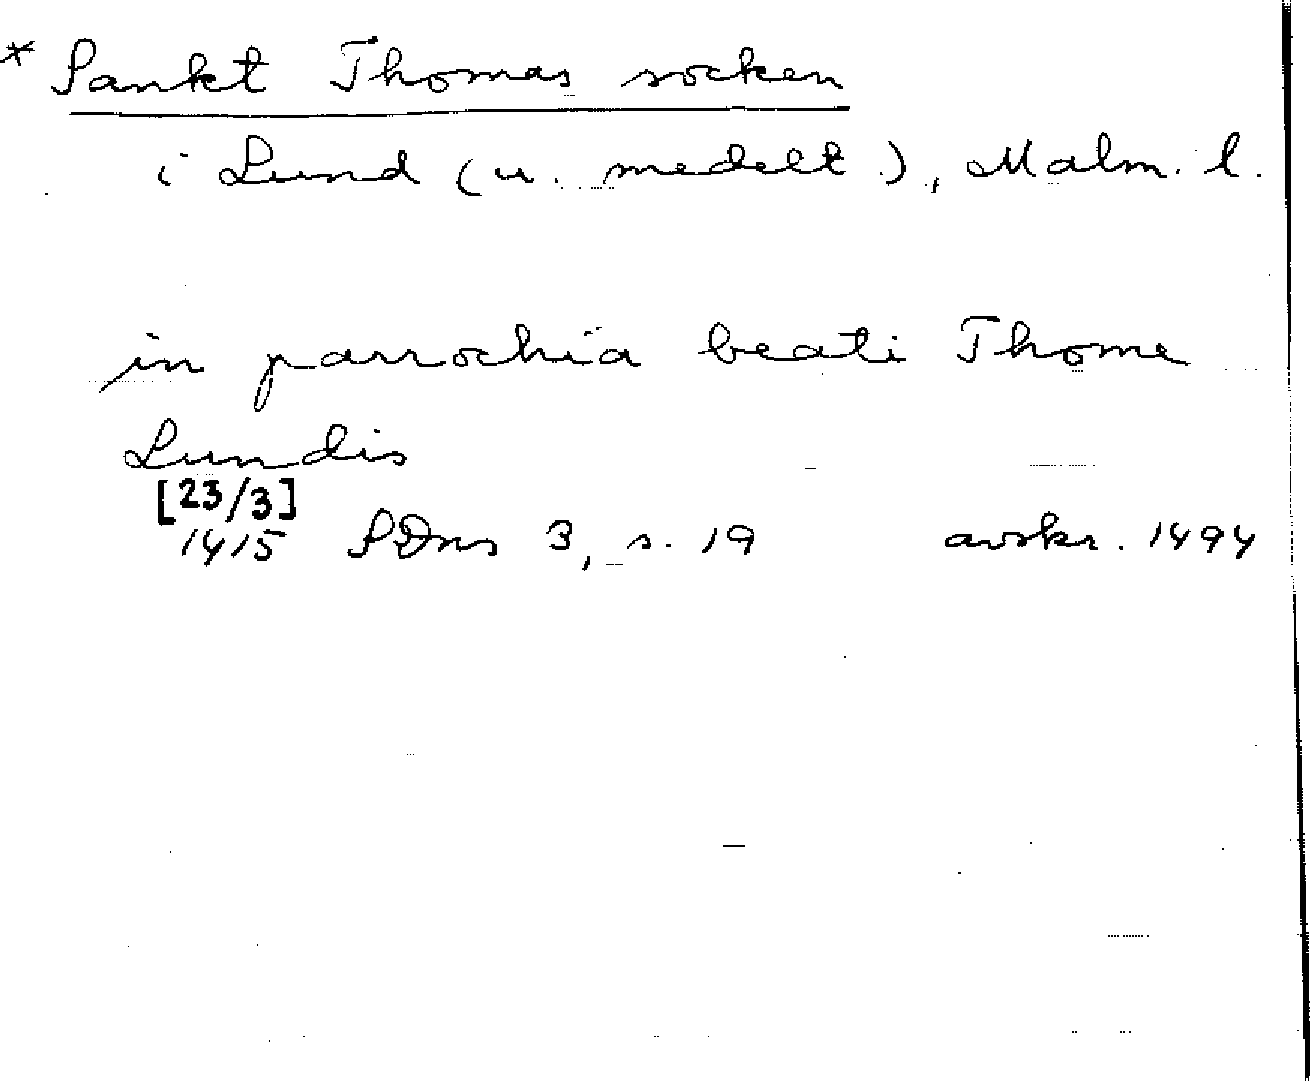 * Sankt Thomas socken
i Lund (u. medelt.), Malm. l.
in parrochia beati Thome
Lundis
[23/3]
1415 SDns 3, s. 19 avskr. 1494